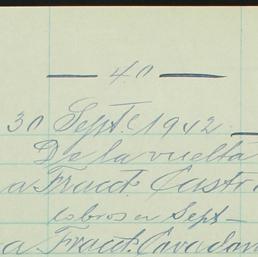 — 40 —
30 Septe 1942 —
De la vuelta
a Franct. Castr
esbros en Sept—
a Franct. Cavadon